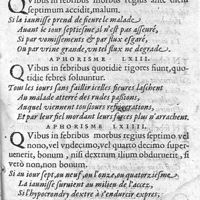 Quibus in febribus morbus regius ante diem
septimum accidit, malum.
Si la iaunisse prend de fieure le malade
Auant le iour septiesme il n'est pas asseuré,
Si par vomissements & par flux esfaré,
Ou par vrine grande, vn tel flux ne degrade.
APHORISME LXIII.
Quibus in febribus quotidie rigores fiunt, quo-
tidie febres soluuntur.
Tout les iours sans faillir si les fieures laschent
Au malade atterré des rudes passions,
Auquel viennent tousiours refrigerations,
Et par leur fiel mordant leurs forces plus n'arrachent.
APHORISME LXIIII.
Quibus in febribus morbus regius septimo vel
nono, vel vndecimo, vel quarto decimo super-
uenerit, bonum, nisi dextrum ilium obduruerit, si
verò non, non bonum.
Si au iour sept, au neuf, ou l'onze, ou quatorziesme
La iaunisse suruient au milieu de l'accez,
Si l'hypocondry dextre à s'endurcir expres,